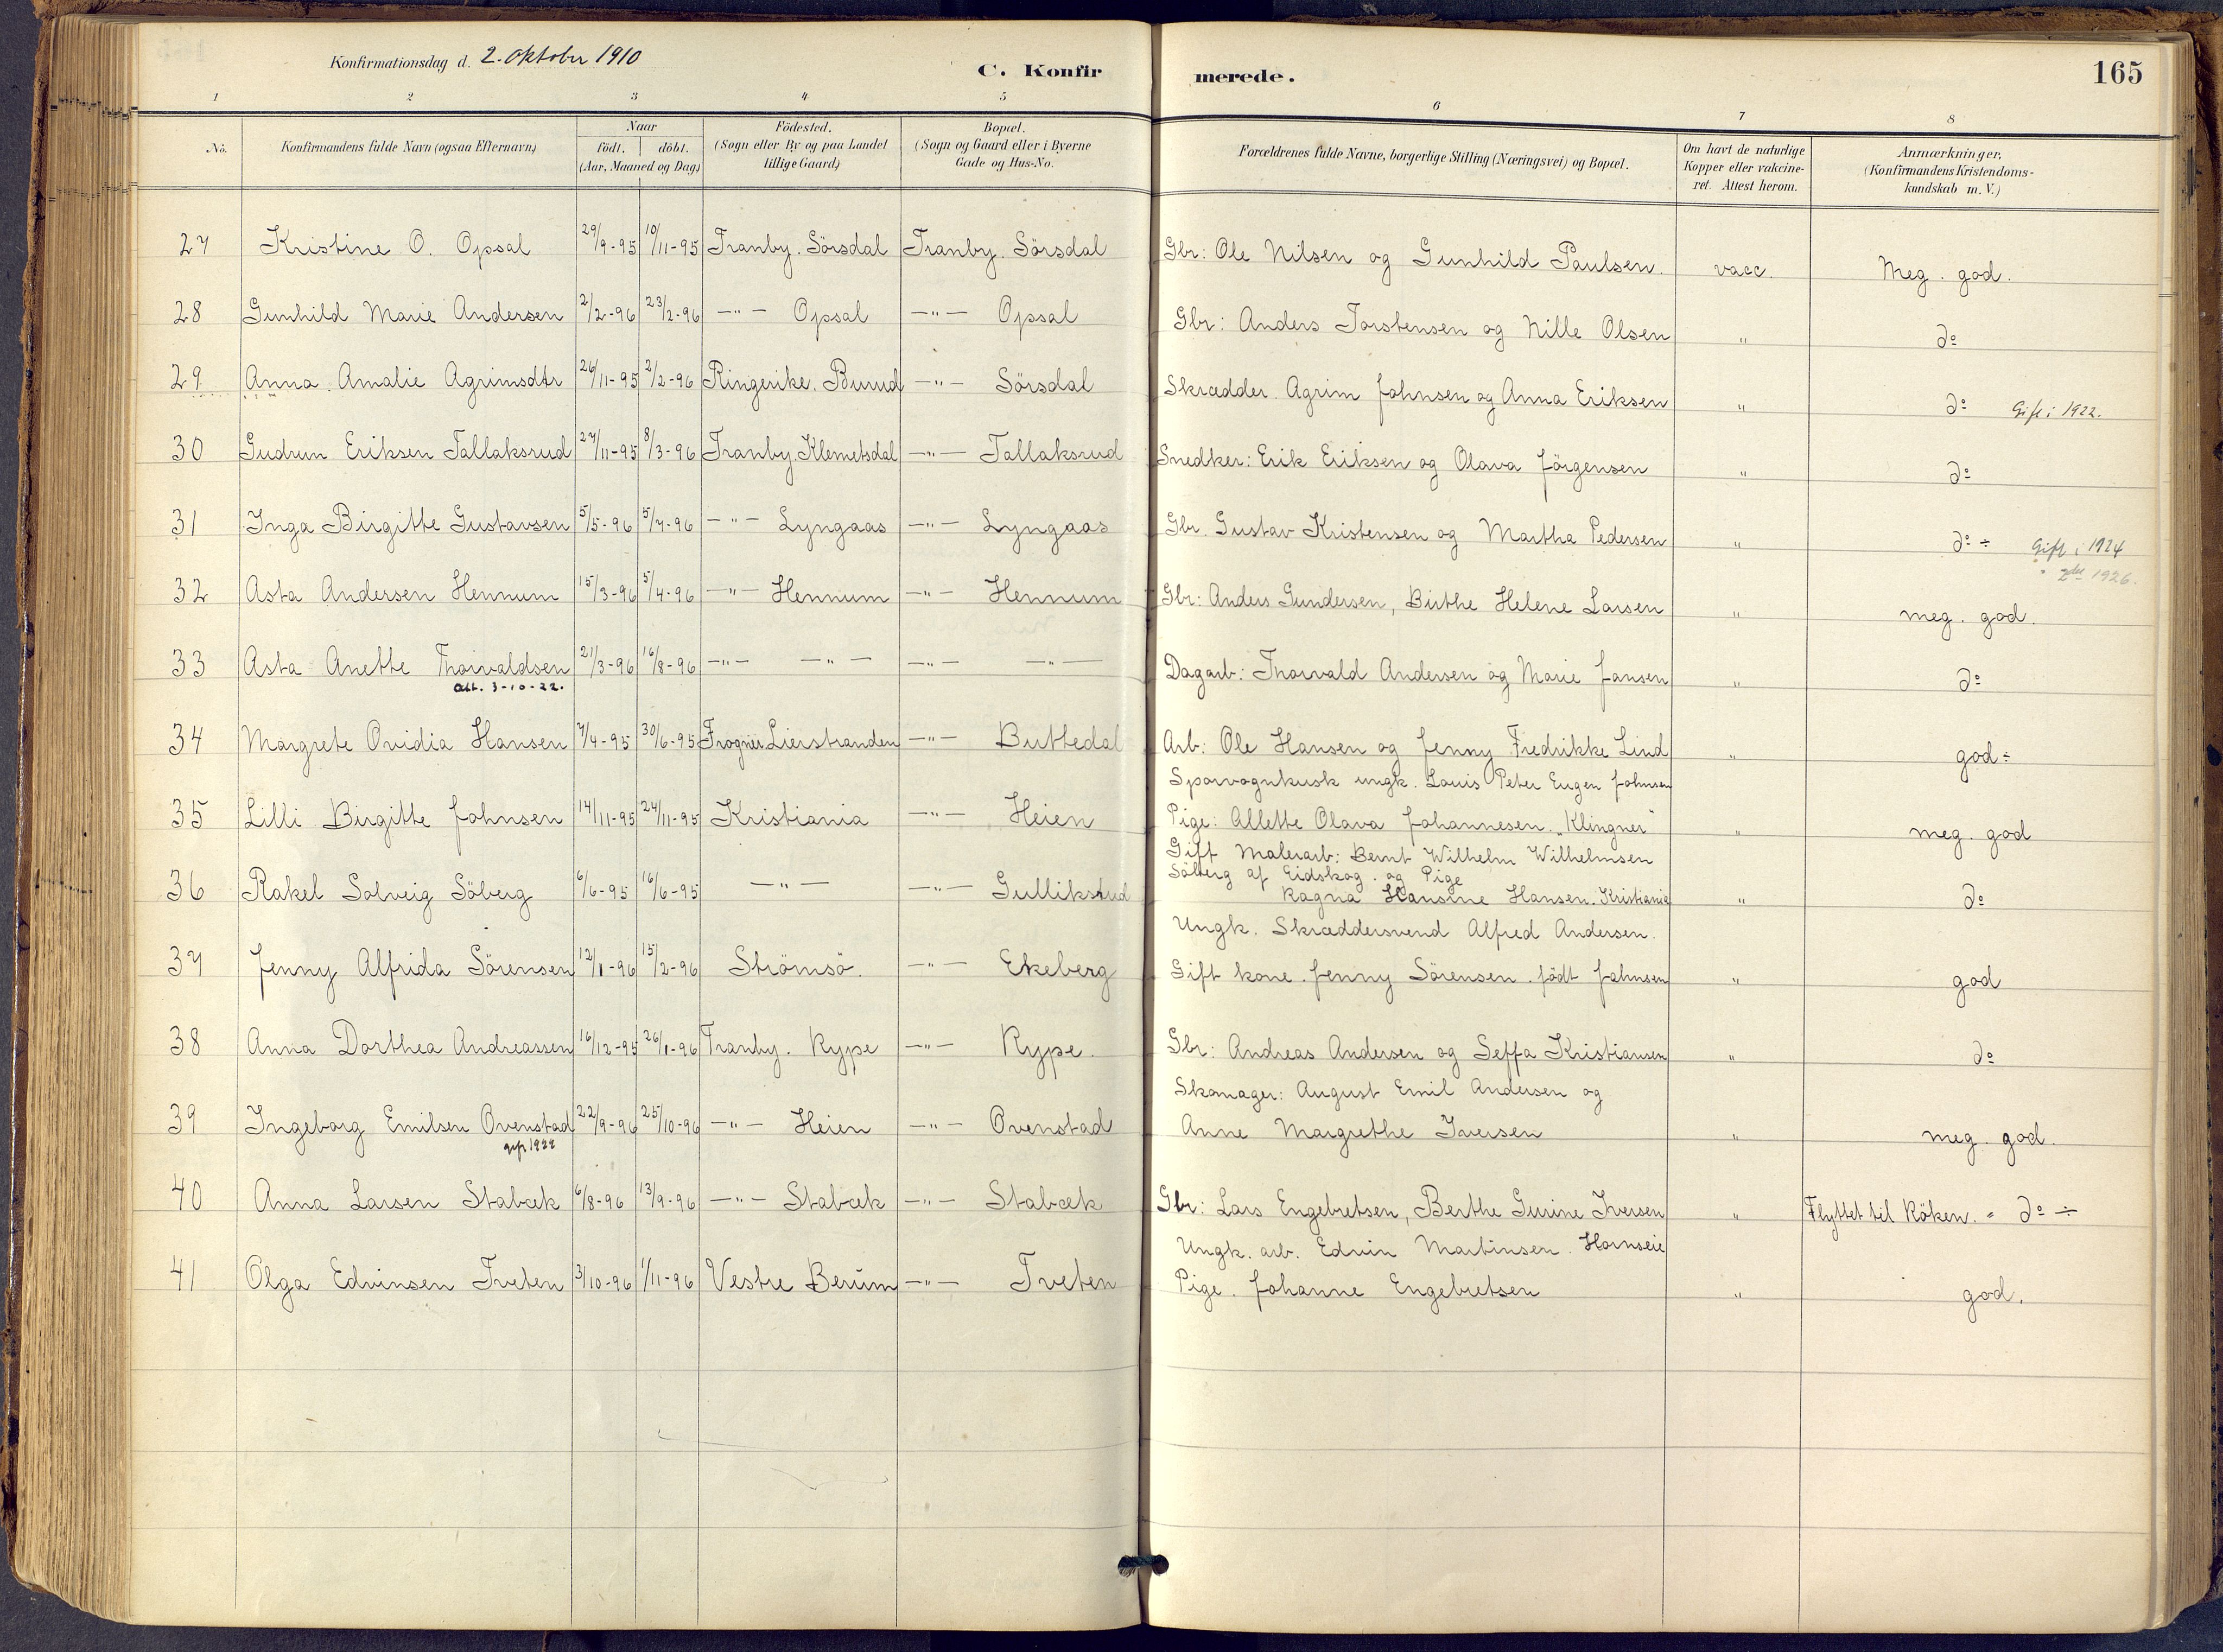 Konfirmationsdag d. 2. Oktober 1910
C. Konfir merede. 165
1 2 3 4 5 6 7 8
No. Konfirmandens fulde Navn (ogsaa Efternavn) Naar födt. döbt. (Aar, Maaned og Dag.) Födested. (Sogn eller By og paa Landet tillige Gaard) Bopæl. (Sogn og Gaard eller i Byerne Gade og Hus-No. Forældrenes fulde Navne, borgerlige Stilling (Næringsvei) og Bopæl. Om havt de naturlige Kopper eller vakcineret. Attest herom. Anmærkninger, (Konfirmandens Kristendomskundskab m.V.)
27 Kristine O. Opsal 29/9-95 10/11-95 Tranby. Sörsdal Tranby. Sörsdal Gbr: Ole Nilsen og Gunhild Paulsen. vacc. Meg. god.
28 Gunhild Marie Andersen 2/2-96 23/2-96 -"- Opsal -"- Opsal Gbr: Anders Torstensen og Nille Olsen " do
29 Anna Amalie Agrimsdtr 26/11-95 2/2-96 Ringerike. Burud -"- Sörsdal Skrædder. Agrim Johnsen og Anna Eriksen " do Gift i 1922.
30 Gudrun Eriksen Tallaksrud 27/11-95 8/3-96 Tranby. Klemetsdal -"- Tallaksrud Snedker: Erik Eriksen og Olava Jörgensen " do
31 Inga Birgitte Gustavsen 5/5-96 5/7-96 -"- Lyngaas -"- Lyngaas Gbr. Gustav Kristensen og Martha Pedersen " do ÷ Gift i 1924
" 2den 1926.
32 Asta Andersen Hennum 15/3-96 5/4-96 -"- Hennum -"- Hennum Gbr: Anders Gundersen, Birthe Helene Larsen " meg. god.
33 Asta Anette Thorvaldsen 21/3-96 16/8-96 -"- -"- -"- -"- Dagarb: Thorvald Andersen og Marie Jansen " do
att. 3-10-22.
34 Margrete Ovidia Hansen 7/4-95 30/6-95 Frogner Lierstranden -"- Buttedal Arb: Ole Hansen og Jenny Fredrikke Lind " god ÷
Sporvognkusk ungk. Louis Peter Eugen Johnsen
35 Lilli Birgitte Johnsen 14/11-95 24/11-95 Kristiania -"- Heien Pige: Allette Olava Johannesen. "Klingner" " meg. god
Gift Malerarb: Bernt Wilhelm Wilhelmsen
Söberg af Eidskog. og Pige
36 Rakel Solveig Söberg 6/6-95 16/6-95 -"- -"- Gulliksrud Ragna Hansine Hansen. Kristiania " do
Ungk. Skræddersvend Alfred Andersen.
37 Jenny Alfrida Sörensen 12/1-96 15/2-96 Strömsö. -"- Ekeberg Gift kone. Jenny Sörensen. födt Johnsen " god
38 Anna Dorthea Andreassen 16/12-95 26/1-96 Tranby. Rype -"- Rype. Gbr: Andreas Andersen og Seffa Kristiansen " do
Skomager: August Emil Andersen og
39 Ingeborg Emilsen Ovenstad 22/9-96 25/10-96 -"- Heien -"- Ovenstad Anne Margrethe Iversen " meg. god.
gif 1922
40 Anna Larsen Stabæk 6/8-96 13/9-96 -"- Stabæk -"- Stabæk Gbr: Lars Engebretsen, Berthe Gurine Iversen " Flyttet til Röken. - do ÷
Ungk. arb. Edvin Martinsen. Hornseie
41 Olga Edvinsen Tveten 3/10-96 1/11-96 Vestre Berum -"- Tveten Pige. Johanne Engebretsen " god.